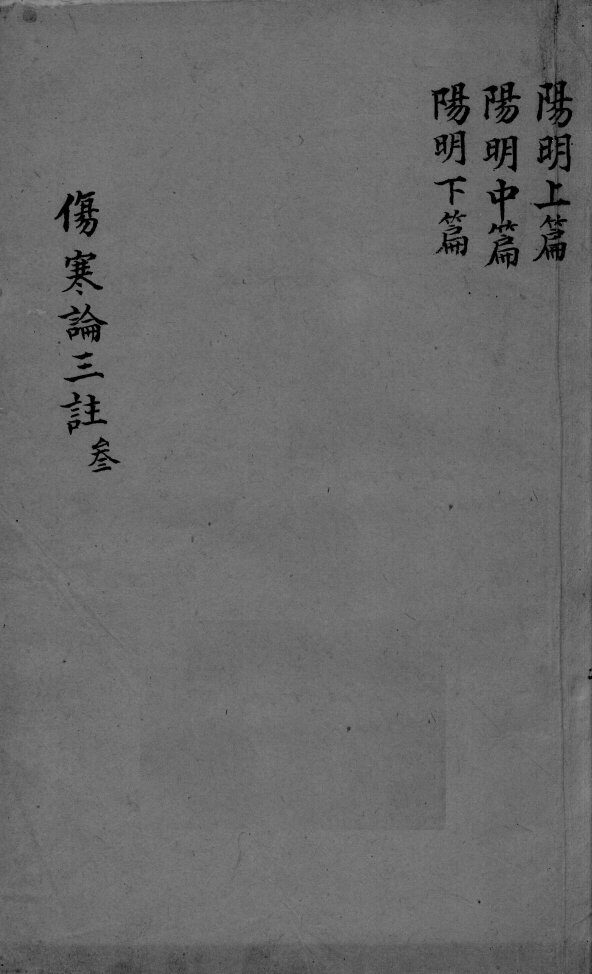 陽明上篇
陽明中篇
陽明下篇
傷寒論三註 叁